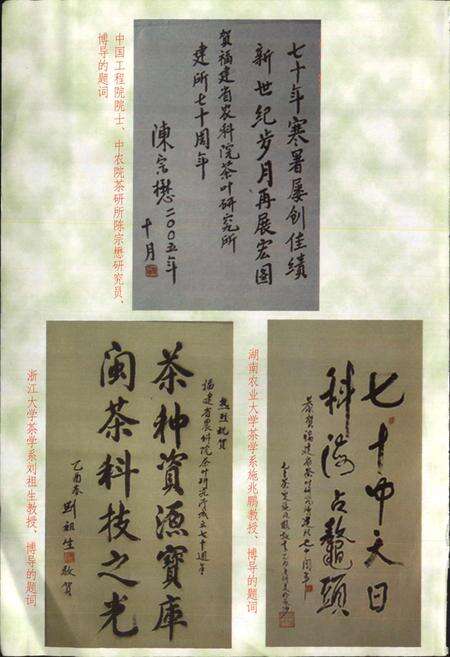 七十年寒暑屡创佳绩
新世纪步月再展宏图
贺福建省农科院茶叶研究所
建所七十周年
陳宗懋二00五年
十月
中国工程院院士、中农院茶研所陈宗懋研究员、
博导的题词
七十中天日
科海占鳌頭
恭贺福建省茶叶研究所建所七十周年
湖南农业大学茶学系施兆鹏教授、博导的题词
热烈祝贺
福建省農科院茶叶研究所成立七十週年
茶种資源寶庫
闽茶科技之光
乙酉春 劉祖生 敬賀
浙江大学茶学系刘祖生教授、博导的题词